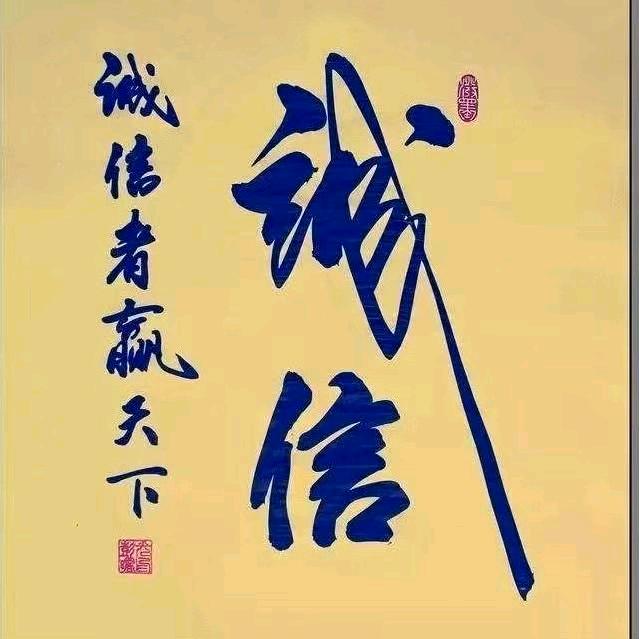 誠信
誠信者贏天下